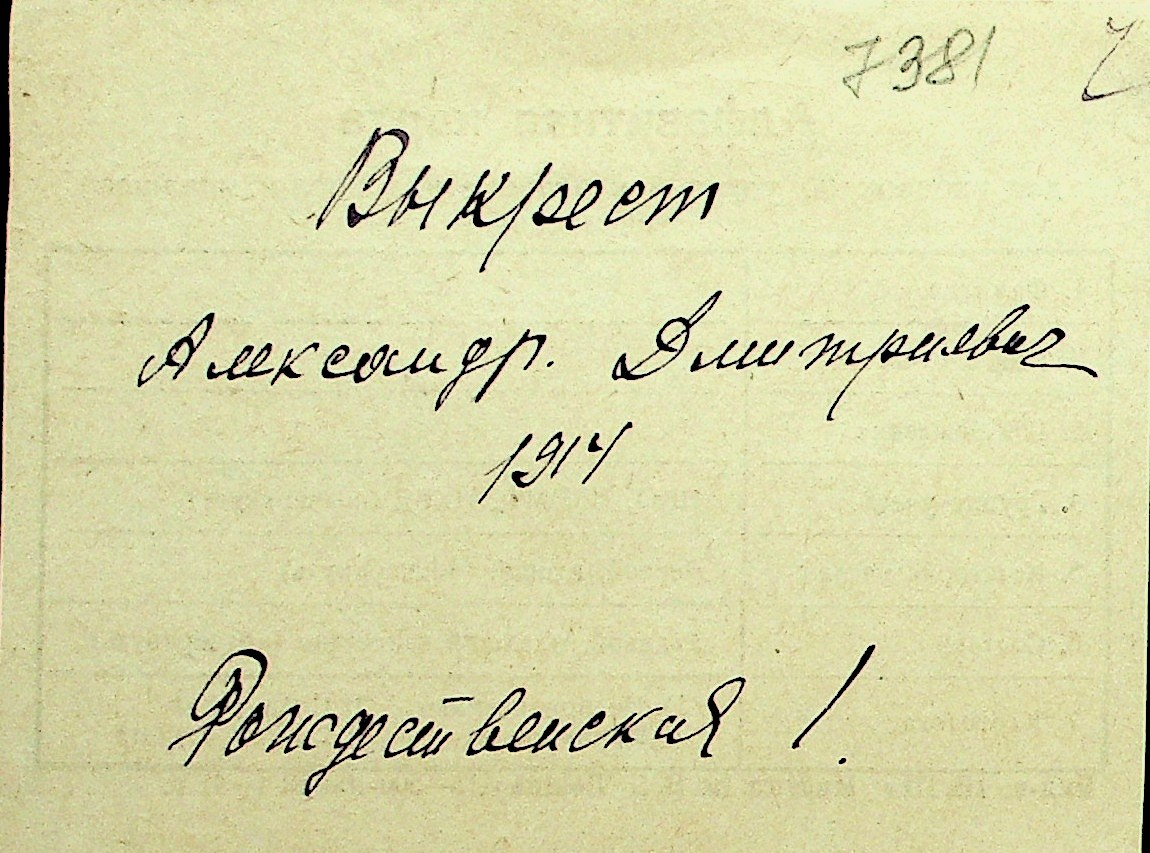 7381
Выкрест
Александр. Дмитриевич
1914
Рождественская !